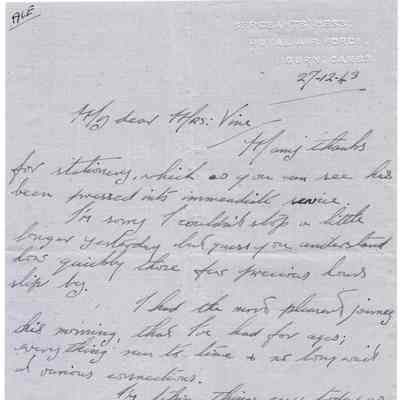 SERGEANTS MESS,
ROYAL AIR FORCE,
BOURN, CAMBS
27-12-43
My dear Mrs: Vine,
Many thanks
for stationery, which as you can see has
been pressed into immediate service.
I'm sorry I couldn't stop a little
longer yesterday but guess you understand
how quickly those few precious hours
slip by.
I had the most pleasant journey
this morning, that I've had for ages;
everything ran to time & no long waits
at various connections.
things